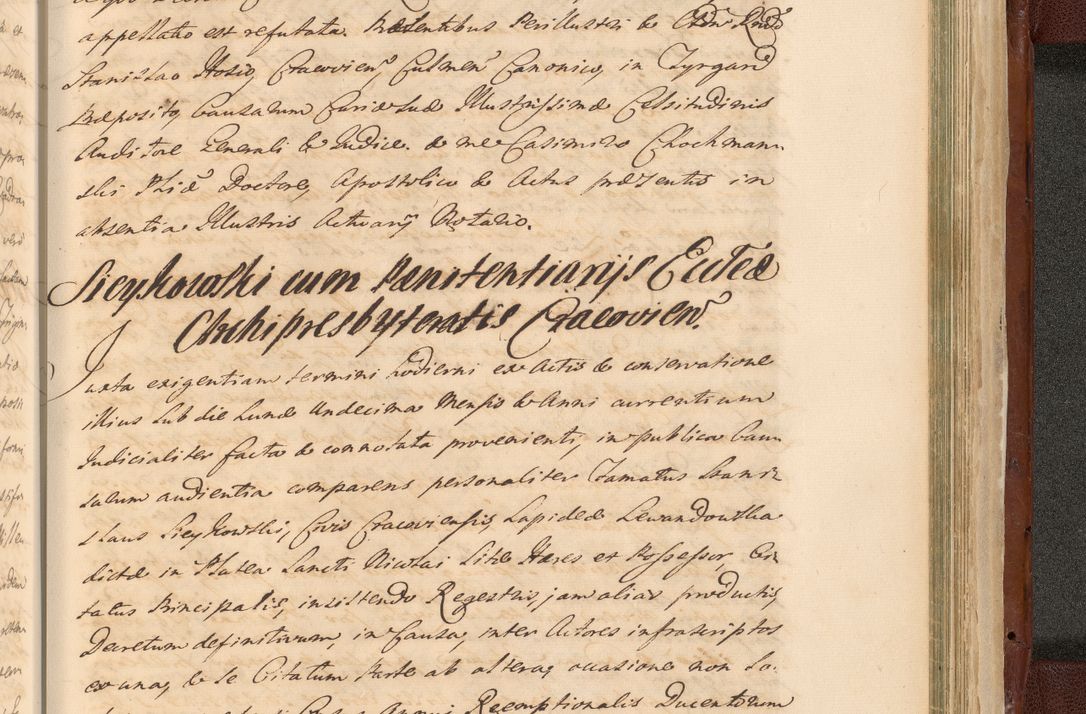 appellatio est refutata. Præsentibus Perillustri &
Stanislao Hosio, Cracovien̄, Culmen̄ Canonico, in
Præposito, Causarum Curiæ suæ Illustrissimæ Celsitudinis
Auditore Generali & Judice. & me Casimiro Chochman
ski Phiæ Doctore, Apostolico & Actus præsentis in
absentia Illustris Actuarij Notario.
Sieykowski cum Pænitentiarijs Ecclæ
Archipresbyteralis Cracovien̄.
Juxta exigentiam termini hodierni ex Actis & conservatione
illius sub die Lunæ Undecima Mensis & Anni currentium
Judicialiter facta & connotata provenienti, in publica Cau
sarum audientia comparens personaliter Famatus Stani
slaus Sieykowski, Civis Cracoviensis, Lapideæ Lewandowska
dictæ in Platea Sancti Nicolai sitæ Hæres et Possessor, Ci
tatus Principalis, insistendo Regestris, jam alias productis,
Decretum definitivum, in Causa, inter Actores infrascriptos
ex una, & se Citatum Parte ab altera, occasione non so
Reemptionalis Ducentorum